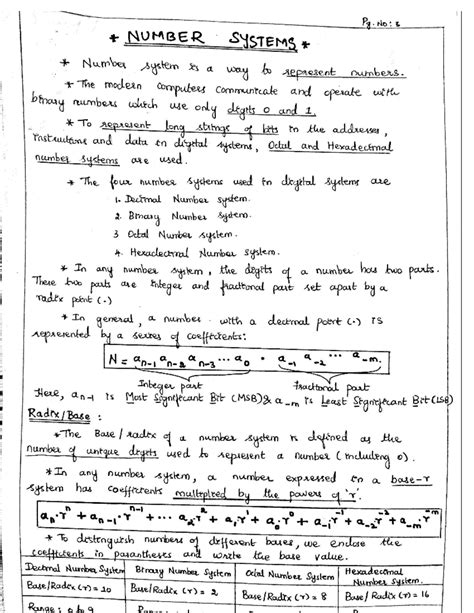 Pg. No: 1
* NUMBER SYSTEMS *
* Number system is a way to represent numbers.
* The modern computers communicate and operate with
binary numbers which use only digits 0 and 1.
* To represent long strings of bits in the addresses,
instructions and data in digital systems, Octal and Hexadecimal
number systems are used.
* The four number systems used in digital systems are
1. Decimal Number system.
2. Binary Number system.
3 Octal Number system.
4. Hexadecimal Number System.
* In any number system, the digits of a number has two parts.
These two parts are integer and fractional part set apart by a
radix point (.)
* In general, a number with a decimal point (.) is
represented by a series of coefficients:
N = a_{n-1} a_{n-2} a_{n-3} ... a_0 . a_{-1} a_{-2} ... a_{-m}
Integer part Fractional part
Here, a_{n-1} is Most Significant Bit (MSB) & a_{-m} is Least Significant Bit (LSB)
Radix/Base :
* The Base / radix of a number system is defined as the
number of unique digits used to represent a number (including 0).
* In any number system, a number expressed in a base-r
system has coefficients multiplied by the powers of 'r'.
a_n.r^n + a_{n-1}.r^{n-1} + ... a_2.r^2 + a_1.r^1 + a_0.r^0 + a_{-1}.r^{-1} + a_{-2}.r^{-2} + a_{-m}.r^{-m}
* To distinguish numbers of different bases, we enclose the
coefficients in parantheses and write the base value.
Decimal Number System Binary Number System Octal Number System Hexadecimal Number System.
Base/Radix (r) = 10 Base/Radix (r) = 2 Base/Radix (r) = 8 Base/Radix (r) = 16
Range: 0 to 9 Range: Range: Range: